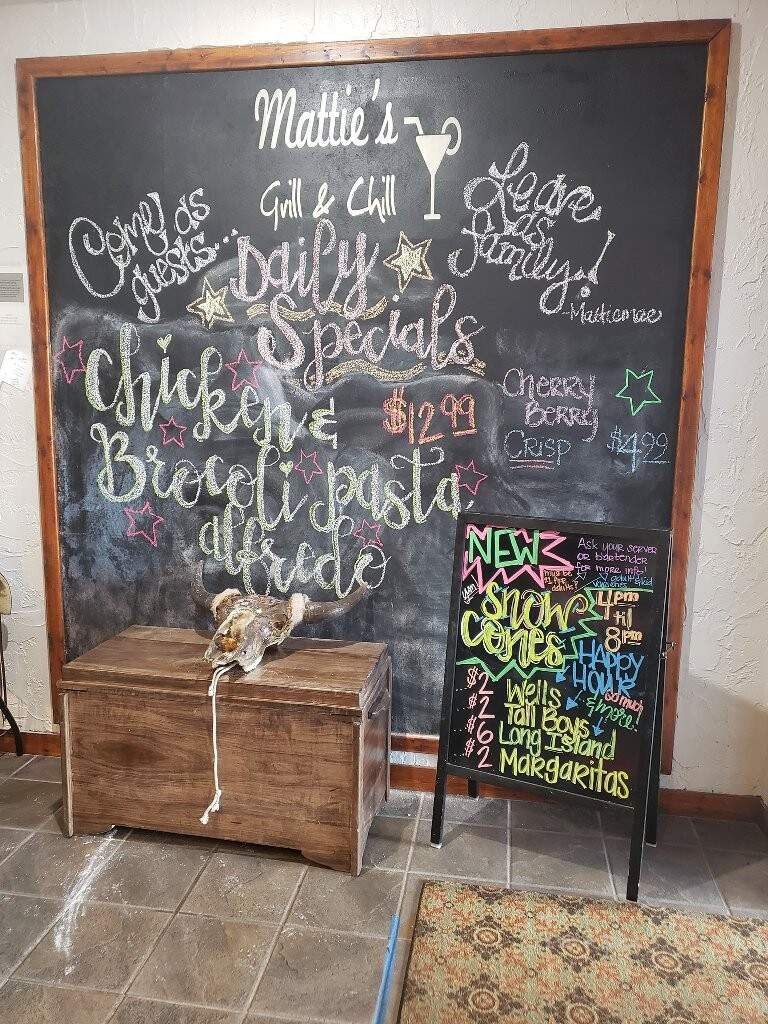 Mattie's
Grill & Chill
Come as
guests...
Leave
as
family!
-Mattiemae
Daily
Specials
Chicken &
Brocoli pasta
alfredo
$12.99
Cherry
Berry
Crisp $4.99
NEW
Ask your server
or bartender
for more info!
Snow
Cones
4pm
til
8pm
Happy
Hour
so much
& more!
$2 Wells
$2 Tall Boys
$6 Long Island
$2 Margaritas